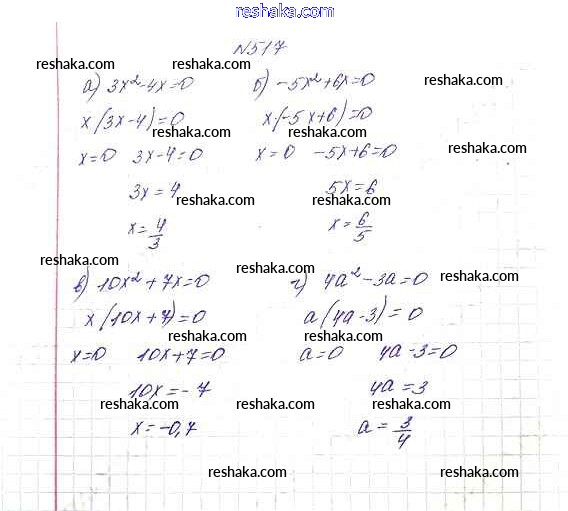 reshaka.com
№517
reshaka.com reshaka.com reshaka.com
а) 3x²-4x=0 б) -5x²+6x=0
reshaka.com
x(3x-4)=0 x(-5x+6)=0
reshaka.com reshaka.com
x=0 3x-4=0 x=0 -5x+6=0
reshaka.com
3x=4 5x=6
reshaka.com reshaka.com
x=4/3 x=6/5
reshaka.com reshaka.com
в) 10x²+7x=0 г) 4a²-3a=0
reshaka.com
x(10x+7)=0 a(4a-3)=0
reshaka.com reshaka.com
x=0 10x+7=0 a=0 4a-3=0
10x=-7 4a=3
reshaka.com reshaka.com reshaka.com
x=-0,7 a=3/4
reshaka.com reshaka.com